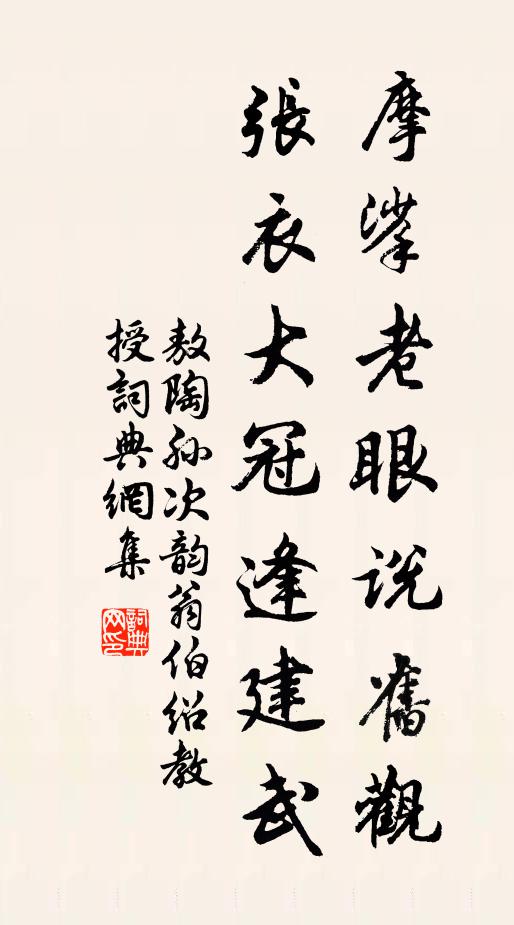 摩挲老眼說舊觀
張衣大冠逢建武
敖陶孙次韵翁伯绍教
授詞典網集
詞典網印